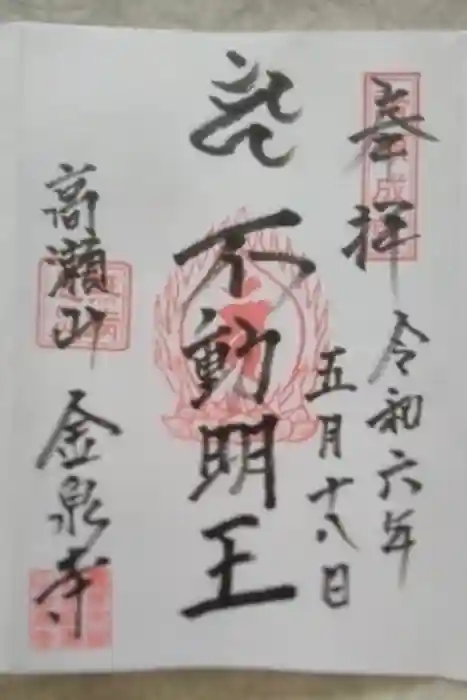 奉拝
令和六年
五月十八日
不動明王
高瀬山 金泉寺